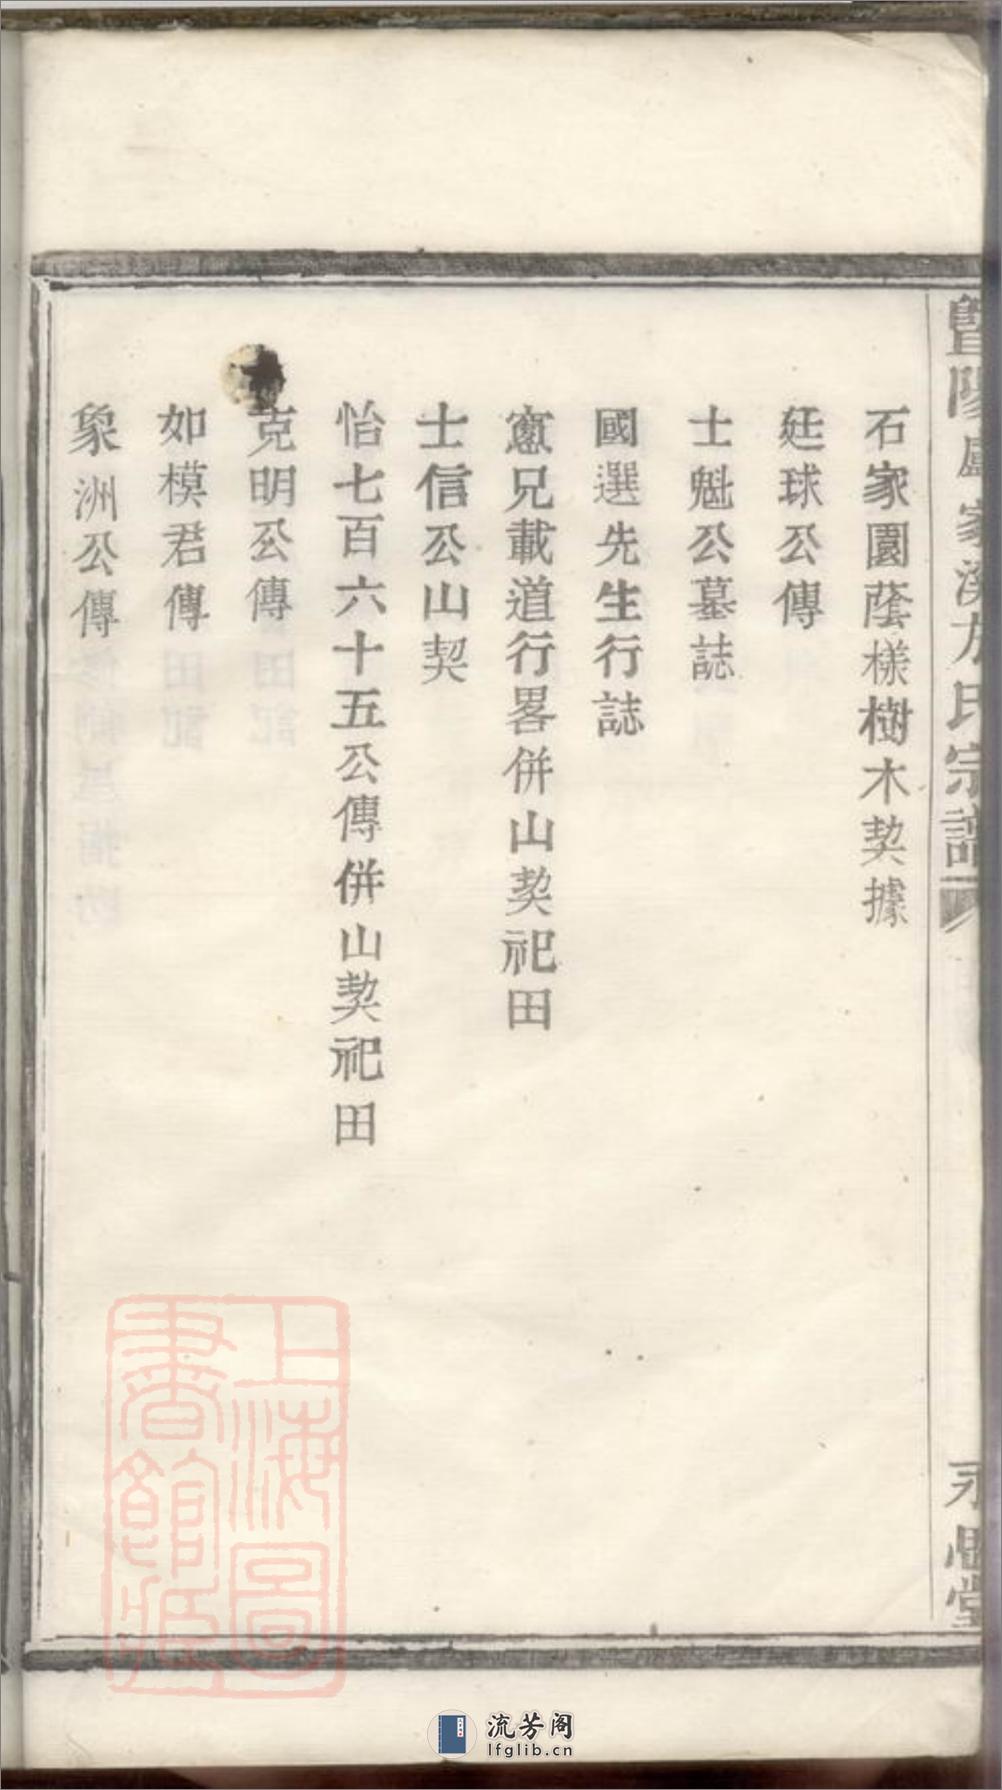 暨陽盧家溪方氏宗譜
永思堂
石家園蔭樣樹木契據
廷球公傳
士魁公墓誌
國選先生行誌
憲兄載道行畧併山契祀田
士信公山契
怡七百六十五公傳併山契祀田
克明公傳
如模君傳
象洲公傳
上海圖
書館藏
流芳阁
lfglib.cn